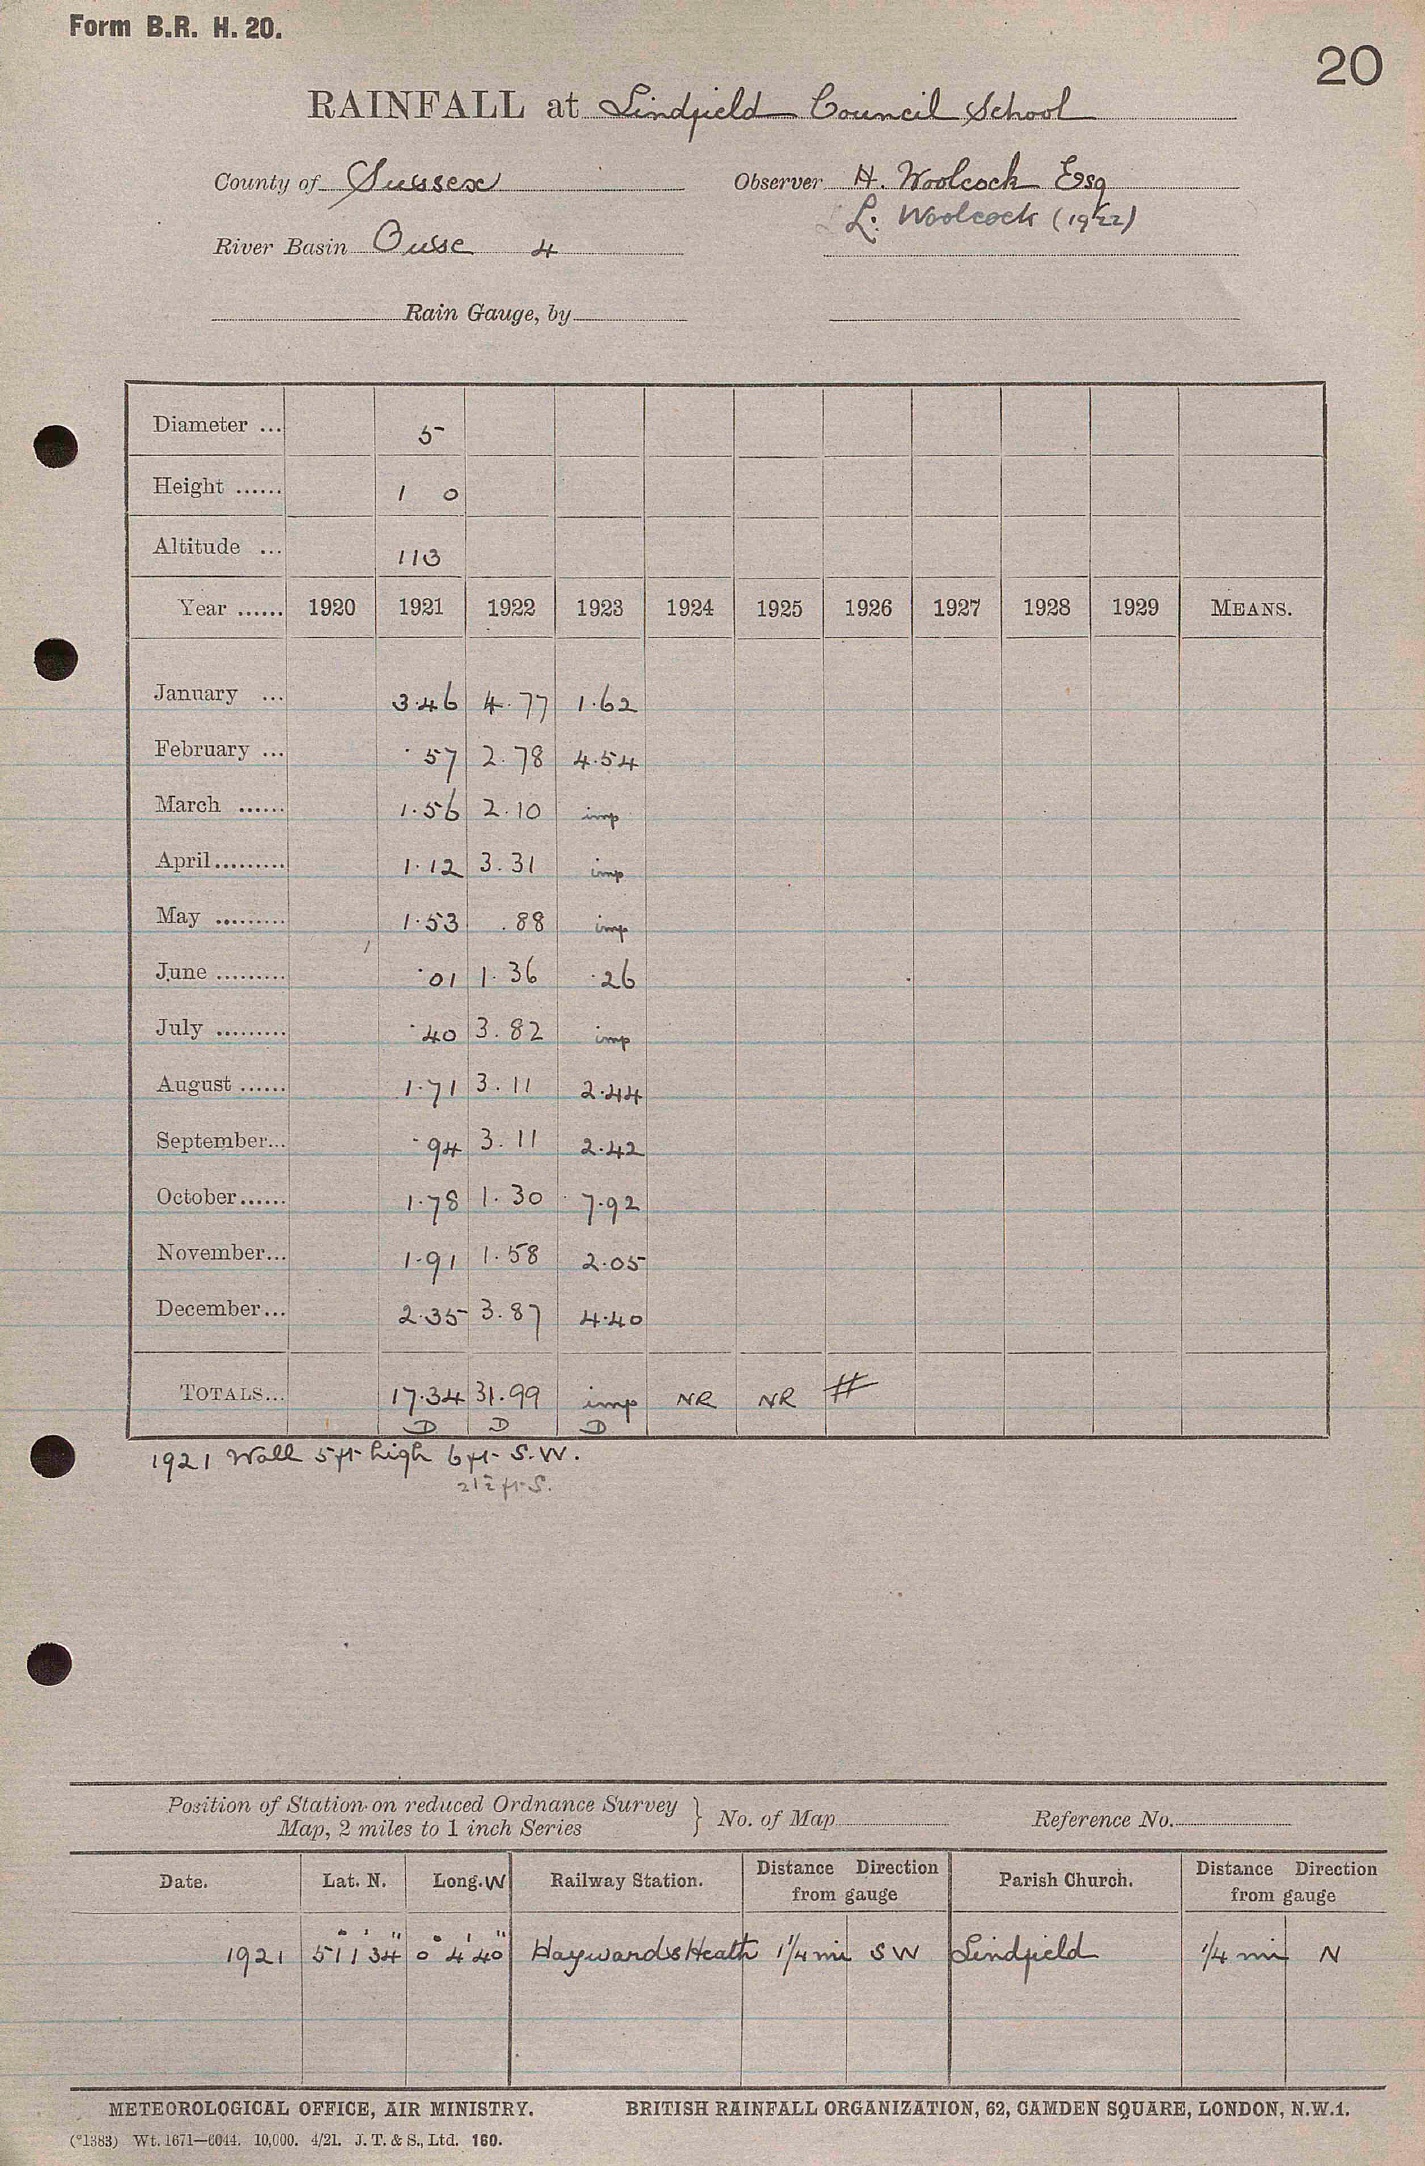 Form B.R. H. 20.
20
RAINFALL at Lindfield Council School
County of Sussex Observer H. Woolcock Esq
L. Woolcock (1922)
River Basin Ouse 4
Rain Gauge, by
Diameter ... 5
Height ...... 1 0
Altitude ... 113
Year ...... 1920 1921 1922 1923 1924 1925 1926 1927 1928 1929 MEANS.
January ... 3.46 4.77 1.62
February ... .57 2.78 4.54
March ...... 1.56 2.10 imp
April......... 1.12 3.31 imp
May ......... 1.53 .88 imp
June ......... .01 1.36 .26
July ......... .40 3.82 imp
August ...... 1.71 3.11 2.44
September... .94 3.11 2.42
October...... 1.78 1.30 7.92
November... 1.91 1.58 2.05
December... 2.35 3.87 4.40
TOTALS... 17.34 31.99 imp NR NR #
D D D
1921 Wall 5 ft high 6 ft S.W.
2 1/2 ft S.
Position of Station on reduced Ordnance Survey
Map, 2 miles to 1 inch Series } No. of Map Reference No.
Date. Lat. N. Long. W Railway Station. Distance Direction from gauge Parish Church. Distance Direction from gauge
1921 51° 1' 34" 0° 4' 40" Haywards Heath 1 1/4 mi SW Lindfield 1/4 mi N
METEOROLOGICAL OFFICE, AIR MINISTRY. BRITISH RAINFALL ORGANIZATION, 62, CAMDEN SQUARE, LONDON, N.W.1.
(*1383) Wt. 1671—6044. 10,000. 4/21. J. T. & S., Ltd. 160.